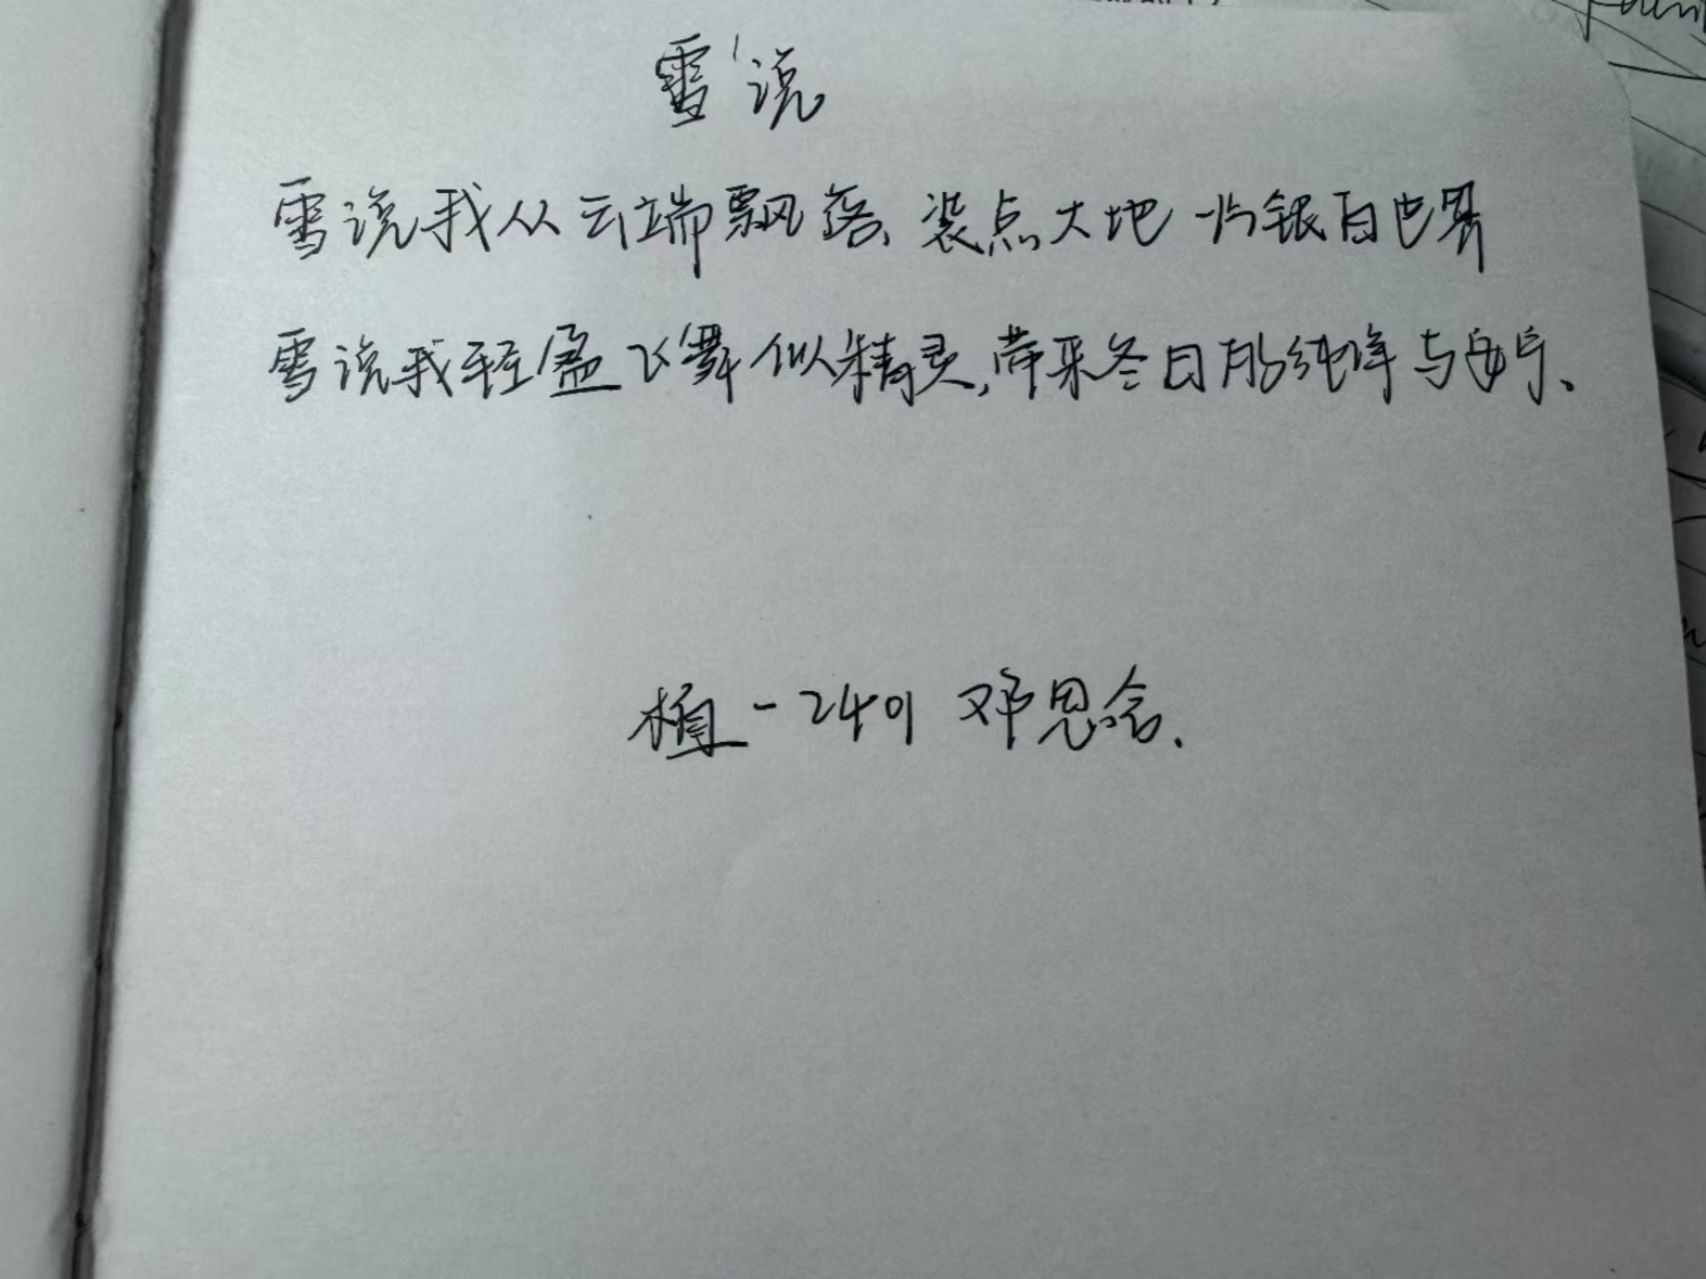 雪说
雪说我从云端飘落、装点大地 为银白世界
雪说我轻盈飞舞似精灵,带来冬日的纯净与安宁、
植-2401 邓思念.